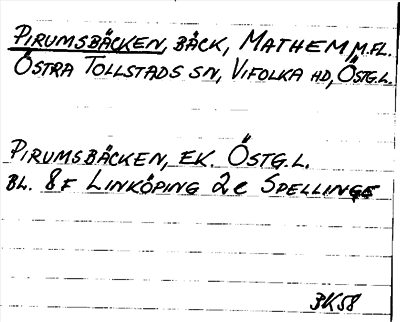 PIRUMSBÄCKEN, BÄCK, MATHEM M.FL.
ÖSTRA TOLLSTADS SN, VIFOLKA HD, ÖSTG.L.
PIRUMSBÄCKEN, EK. ÖSTG.L.
BL. 8F LINKÖPING 2e SPELLINGE
BK58